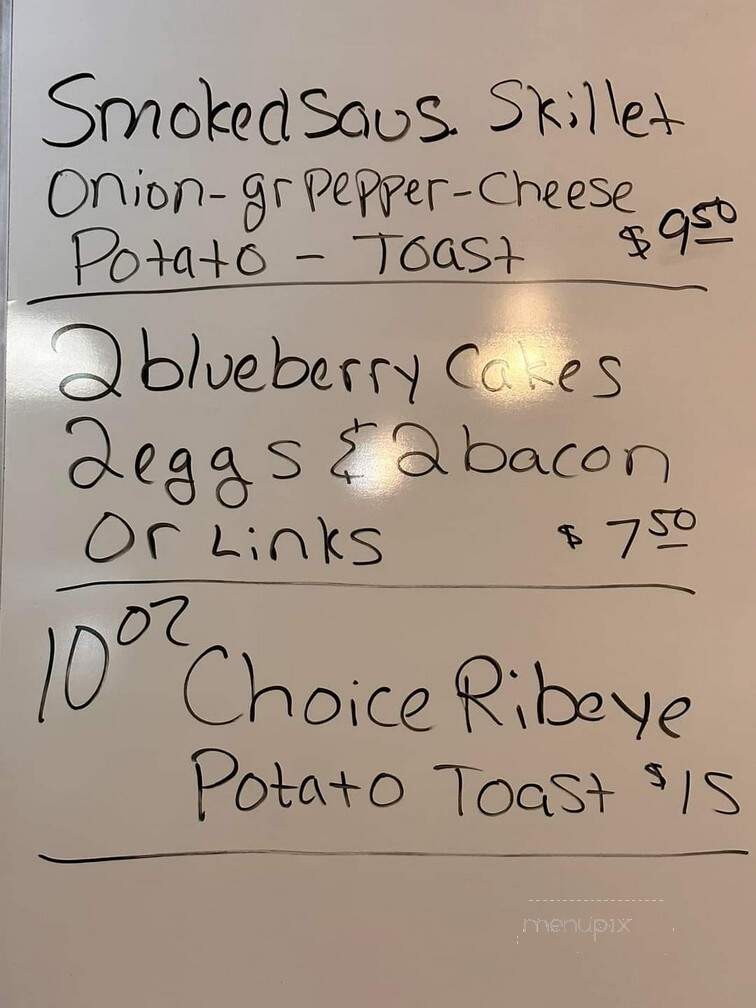 Smoked Saus. Skillet
Onion-gr Pepper-Cheese
Potato - Toast $9.50
2 blueberry Cakes
2 eggs & 2 bacon
Or Links $7.50
10 oz Choice Ribeye
Potato Toast $15
menupix